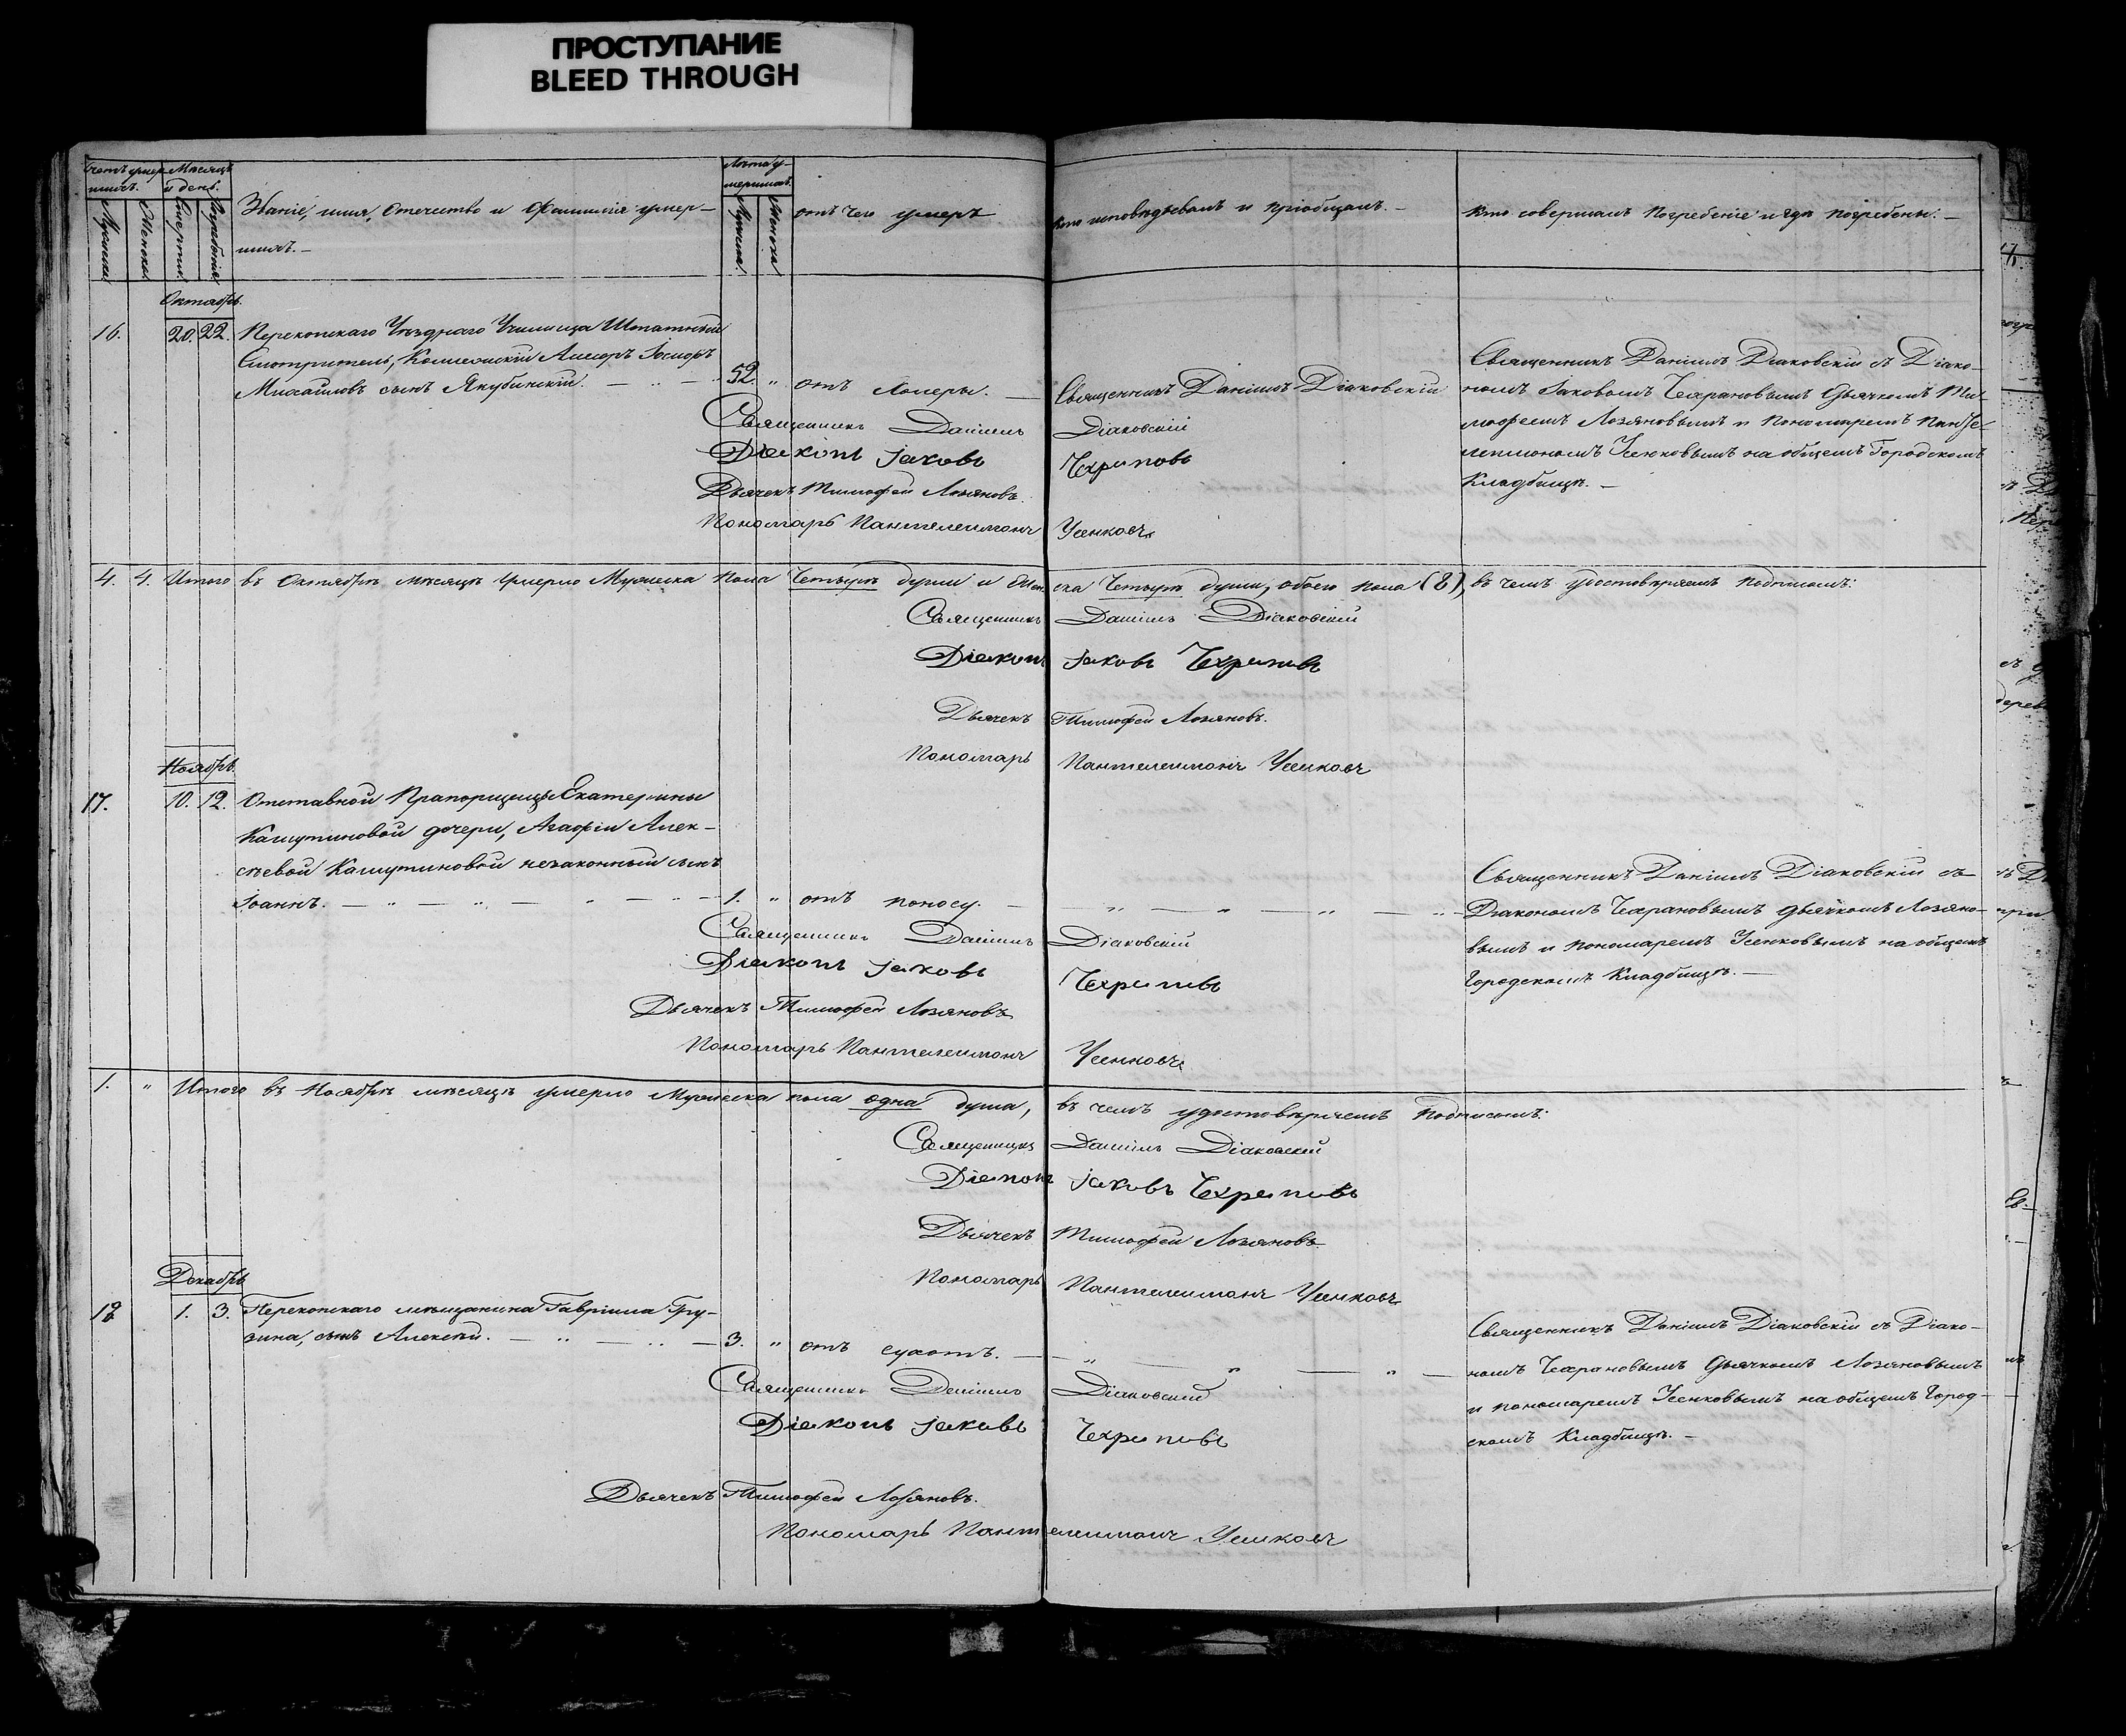 ПРОСТУПАНИЕ
BLEED THROUGH
Счетъ умер-
шихъ.
Мѣсяцъ
и день.
Мужска.
Женска.
Смерти.
Погребенія.
Званіе, имя, Отечество и Фамилія умер-
шихъ.-
Лѣта у-
мершихъ.
Мужска.
Женска
отъ чего умеръ
Кто исповѣдывалъ и пріобщалъ.-
Кто совершалъ погребеніе и гдѣ погребены.-
Октябрь.
16. 20. 22. Перекопскаго Уѣзднаго Училища Штатный
Смотритель, Коллежскій Ассесоръ Іосифъ
Михайловъ сынъ Якубинскій. 52. " отъ холеры.
Священникъ Даніилъ Діаковскій
Священникъ Даніилъ Діаковскій съ Діако-
номъ Іаковомъ Чехрановымъ Дьячкомъ Ти-
мофеемъ Лозяновымъ и Пономаремъ Панте-
леимономъ Усенковымъ на общемъ Городскомъ
Кладбищѣ.-
Священникъ Даніилъ Діаковскій
Діаконъ Іаковъ Чехрановъ
Дьячекъ Тимофей Лозяновъ
Пономарь Пантелеимонъ Усенковъ
4. 4. Итого въ Октябрѣ мѣсяцѣ умерло Мужеска пола Четыре души и Женска Четыре души, обоего пола (8), въ чемъ удостовѣряемъ подписомъ:
Священникъ Даніилъ Діаковскій
Діаконъ Іаковъ Чехрановъ
Дьячекъ Тимофей Лозяновъ.
Пономарь Пантелеимонъ Усенковъ
Ноябрь.
17. 10. 12. Отставной Прапорщицы Екатерины
Кашутиновой дочери, Агафіи Алек-
сѣевой Кашутиновой незаконный сынъ
Іоаннъ. 1. " отъ поносу.
Священникъ Даніилъ Діаковскій съ
Діакономъ Чехрановымъ дьячкомъ Лозяно-
вымъ и пономаремъ Усенковымъ на общемъ
Городскомъ Кладбищѣ.-
Священникъ Даніилъ Діаковскій
Діаконъ Іаковъ Чехрановъ
Дьячекъ Тимофей Лозяновъ
Пономарь Пантелеимонъ Усенковъ
1. " Итого въ Ноябрѣ мѣсяцѣ умерло Мужеска пола одна душа, въ чемъ удостовѣряемъ подписомъ:
Священникъ Даніилъ Діаковскій
Діаконъ Іаковъ Чехрановъ
Дьячекъ Тимофей Лозяновъ
Пономарь Пантелеимонъ Усенковъ
Декабрь
18 1. 3. Перекопскаго мѣщанина Гавріила Гру-
зина, сынъ Алексѣй. 3. " отъ сухотъ.
Священникъ Даніилъ Діаковскій съ Діако-
номъ Чехрановымъ Дьячкомъ Лозяновымъ
и пономаремъ Усенковымъ на общемъ Город-
скомъ Кладбищѣ.-
Священникъ Даніилъ Діаковскій
Діаконъ Іаковъ Чехрановъ
Дьячекъ Тимофей Лозяновъ.
Пономарь Пантелеимонъ Усенковъ